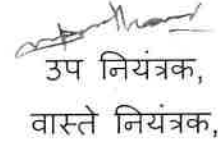 उप नियंत्रक,
वास्ते नियंत्रक,